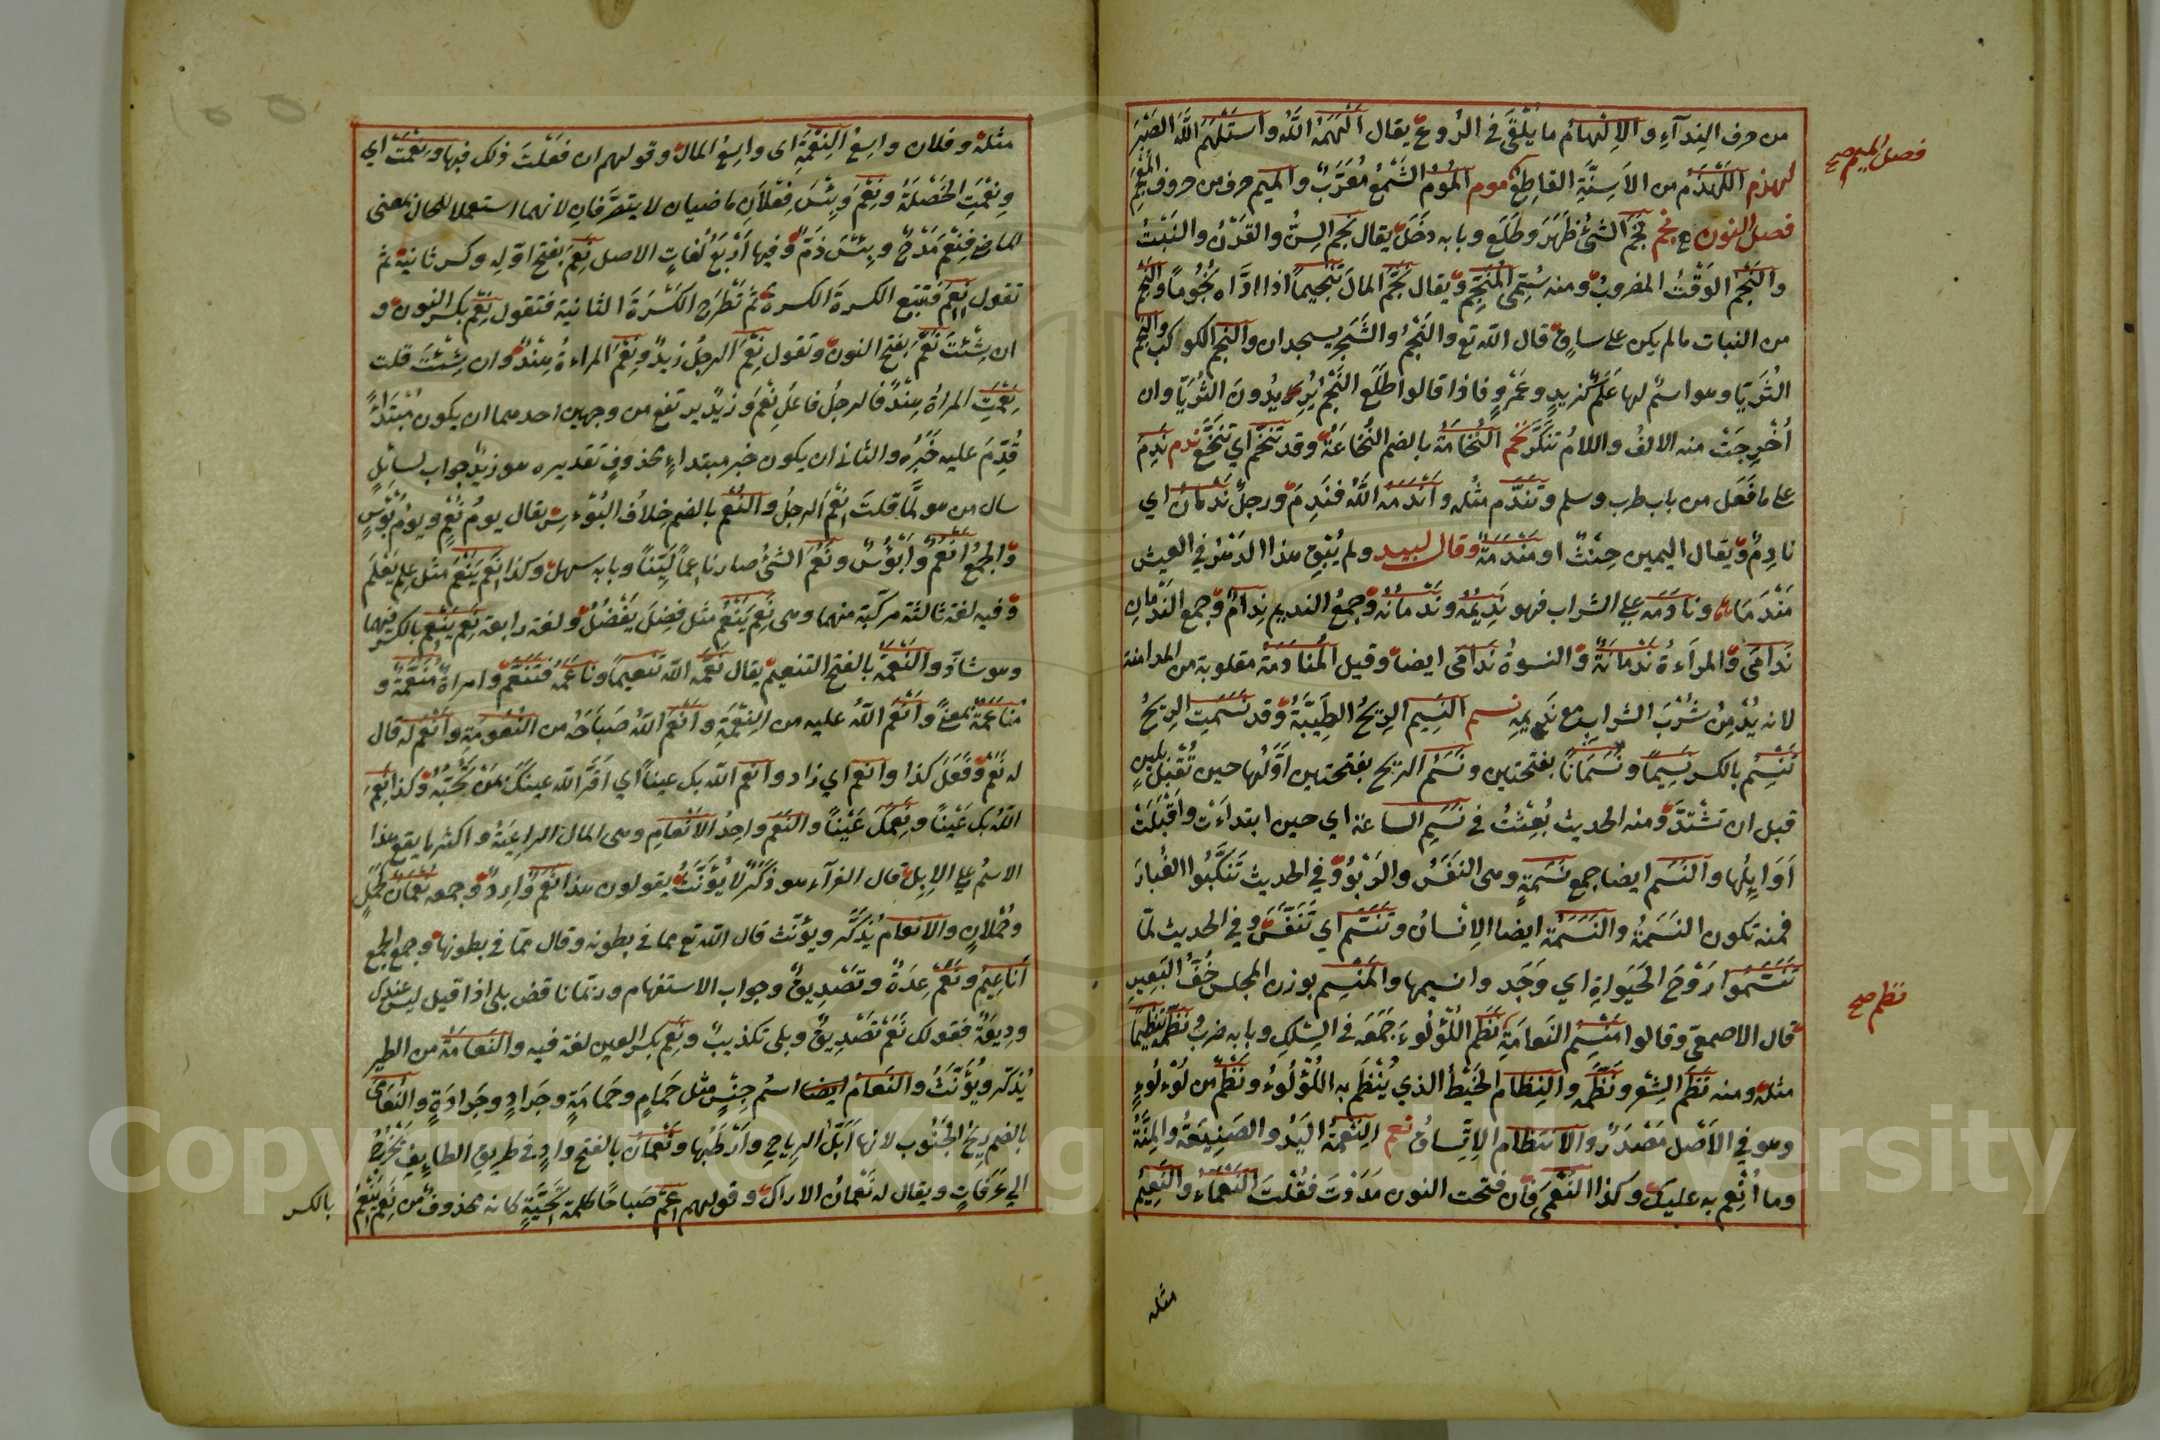 من حرف النِدآءِ والاِلْهامُ ما يُلْقَى في الرُوعِ يقال اَلْهَمَهُ اللّٰهُ واسْتَلْهَمَ اللّٰهَ الصَبْرَ
فصل الميم صح
لهذم اللَهْذَمُ من الاَسِنَّةِ القاطِعُ موم المُومُ الشَمْعُ مُعَرَّبٌ والميم حرف من حروف المُعْجَمِ
فصل النون نجم نَجَمَ الشئُ ظَهَرَ وطَلَع وبابه دخَلَ يقال نَجَم السِنُّ والقَرْنُ والنَبْتُ
والنَجْمُ الوَقْتُ المضروبُ ومنه سُمِّىَ المُنَجِّم ويقال نَجَّم المالَ تَنْجيماً اذا ادَّاه نُجُوماً والنَجْمُ
من النبات مالم يكن على ساقٍ قال اللّه تع والنَجْمُ والشَجَر يسجدان والنَجْم الكوكب والنَجْم
الثُرَيّا وهو اسمٌ لها عَلَمٌ كزيدٍ وعَمْرٍو فاذا قالوا طَلَع النَجْمُ يُرِيدُونَ الثُرَيّا وان
اُخْرِجَتْ منه الالفُ واللامُ تنَكَّرَ نخم النُخامَةُ بالضم النُخاعَةُ وقد تَنَخَّم اي تنَخَّعَ ندم نَدِمَ
على ما فَعَل من باب طرب وسلم وتَنَدَّم مثله واَنْدَمَهُ اللّٰهُ فنَدِمَ ورجلٌ نَدْمانُ اي
نادِمٌ ويقال اليمين حِنْثٌ او مَنْدَمَةٌ وقال لبيد ولم يُبْقِ هذا الدَهْرُ في العيش
مَنْدَمَا ونادَمَه على الشراب فهو نَدِيمُه ونَدْمانُه وجمعُ النديم نِدامٌ وجمع النَدْمانِ
نَدامَى والمرأةُ نَدْمانَةٌ والنسوةُ نَدَامَى ايضا وقيل المُنادَمَةُ مقلوبة من المدامنة
لانه يُدْمِنُ شُرْبَ الشراب مع نَدِيمِهِ نسم النَسِيم الرِيحُ الطَيِّبَةُ وقد نَسَمَتِ الرِيحُ
تَنْسِمُ بالكسر نَسِيمًا ونَسَمَانًا بفتحتين ونَسَمُ الريح بفتحتين اَوَّلُها حين تُقْبِل بلِينٍ
قبل ان تشْتَدَّ ومنه الحديث بُعِثْتُ في نَسَمِ الساعة اي حين ابتداءَتْ واَقْبَلَتْ
اَوَايِلُها والنَسَم ايضا جمع نَسَمةٍ وهي النَفَسُ والرَبْوُ وفي الحديث تَنَكَّبُوا الغُبارَ
فمنه تكون النَسَمَةُ والنَسَمَةُ ايضا الاِنْسانُ وتَنَسَّم اي تَنَفَّسَ وفي الحديث لمّا
تَنَسَّمُوا رَوْحَ الحَيَوةِ اي وَجَدوا نسيمها والمَنْسِم بوزن المجلس خُفُّ البَعِيرِ
نظم صح
قال الاصمعى وقالوا مَنْسِمُ النَعامَةِ نَظَم اللُؤْلُؤَ جَمَعَه في السِلْكِ وبابه ضربُ نَظَّمَه تَنْظِيماً
مثله ومنه نَظَم الشِعْر ونَظَّمَه والنِظام الخَيْطُ الذي يُنْظَم به اللُؤْلُؤُ ونَظْمٌ من لُؤْلُؤٍ
وهو في الاَصْل مَصْدَرٌ والاِنْتِظام الاِتِّساقُ نعم النِعْمَةُ اليَدُ والصَنِيعَةُ والمِنَّةُ
وما اُنْعِم به عليك وكذا النُعْمَى فان فتحت النون مَدَدْتَ فقُلْتَ النَعْماءُ والنَعِيمُ
مثله
مثله وفلان واسِعُ النِعْمَةِ اى واسِعُ المال وقولهم ان فعَلْتَ ذلك فبِها ونِعْمَتْ اي
ونِعْمَتِ الخَصْلَةُ ونِعْمَ وبِئْسَ فِعْلانِ ماضيان لا يتصَرَّفانِ لانهما استعملا للحال بمعنى
الماضى فنِعْمَ مَدْحٌ وبِئْسَ ذَمٌّ وفيها اَرْبَعُ لُغاتٍ الاصل نَعِمَ بفتح اوّله وكسر ثانيه ثم
تقول نِعِمَ فتتبع الكسرةَ الكسرة ثمّ تَطْرَح الكَسْرَةَ الثانية فتقول نِعْمَ بكسر النون و
ان شِئْتَ نَعْمَ بفتح النون وتقول نِعْمَ الرجلُ زيدٌ ونِعْمَ المراءةُ هِنْدٌ وان شِئْتَ قلت
نِعْمَتِ المراةُ هِنْدٌ فالرجلُ فاعلُ نِعْمَ وزيدٌ يرتفع من وجهين احدهما ان يكون مُبْتَدَاً
قُدِّمَ عليه خَبَرُه والثانى ان يكون خبر مبتداءٍ محذوفٍ تقديره هو زيدٌ جواب لسائلٍ
سال من هو لمّا قلتَ نِعْمَ الرجلُ والنُعْم بالضم خِلافُ البُؤْس يقال يومُ نُعْمٍ ويومُ بُؤْسٍ
والجمعُ اَنْعُمٌ واَبْؤُسٌ ونَعُمَ الشئُ صار ناعِماً لَيِّناً وبابه سهل وكذا نَعِمَ يَنْعَمُ مثل عَلِم يَعْلَم
وفيه لغة ثالثة مركّبة منهما وهى نَعِمَ يَنْعُمُ مثل فَضِلَ يَفْضُلُ ولغة رابعة نَعِمَ يَنْعِمُ بالكسر فيهما
وهو شاذّ والنَعْمَة بالفتح التنعيم يقال نَعَّمَه اللّه تَنْعيماً وناعَمَه فتَنَعَّم وامراةٌ مُنَعَّمَةٌ و
مُناعَمَةٌ بمعنًى واَنْعَم اللّٰهُ عليه من النِعْمَةِ واَنْعَم اللّٰهُ صَباحَه من النُعُومَةِ واَنْعَمَ له قال
له نَعَمْ وفَعَلَ كذا واَنْعَم اي زاد واَنْعَم اللّه بك عيناً اي اَقَرَّ اللّه عينك بمَنْ تُحِبُّهُ وكذا نَعِمَ
اللّٰهُ بك عَيْنًا ونَعِمَكَ عَيْنًا والنَعَم واحِدُ الاَنْعامِ وهى المال الراعِيَةُ واكثر ما يقع هذا
الاسمُ على الاِبِل قال الفرآء هو ذَكَرٌ لا يُؤَنَّثُ يقولون هذا نَعَمٌ وارِدٌ وجمعه نُعْمانٌ كحَمَلٍ
وحُمْلانٍ والانعام يُذَكَّر ويؤنث قال اللّه تع مما في بطونه وقال ممّا في بطونها وجمع الجمع
اَناعِيمُ ونَعَمْ عِدَةٌ وتَصْدِيقٌ وجواب الاستفهام وربّما ناقض بلى اذا قيل ليس عندك
ودِيعَةٌ فقولك نَعَمْ تَصْدِيقٌ وبلى تكذيبٌ ونَعِمْ بكسر العين لغة فيه والنَعامَةُ من الطير
يُذكّر ويُؤَنَّثُ والنَعامُ ايضا اسمُ جِنْسٍ مثل حَمامٍ وحَمامَةٍ وجَرادٍ وجَرادَةٍ والنُعامَى
بالضم رِيحُ الجَنُوب لانها اَبَلُّ الرياحِ واَرْطَبُها ونَعْمانُ بالفتح وادٍ في طريق الطايِف يَخْرُجُ
الى عَرَفاتٍ ويقال له نَعْمانُ الاراك وقولهم عِمْ صَباحًا كلمة تَحِيَّةٍ كانه محذوف من نَعِمَ يَنْعِمُ
بالكسر
Copyright © King Saud University